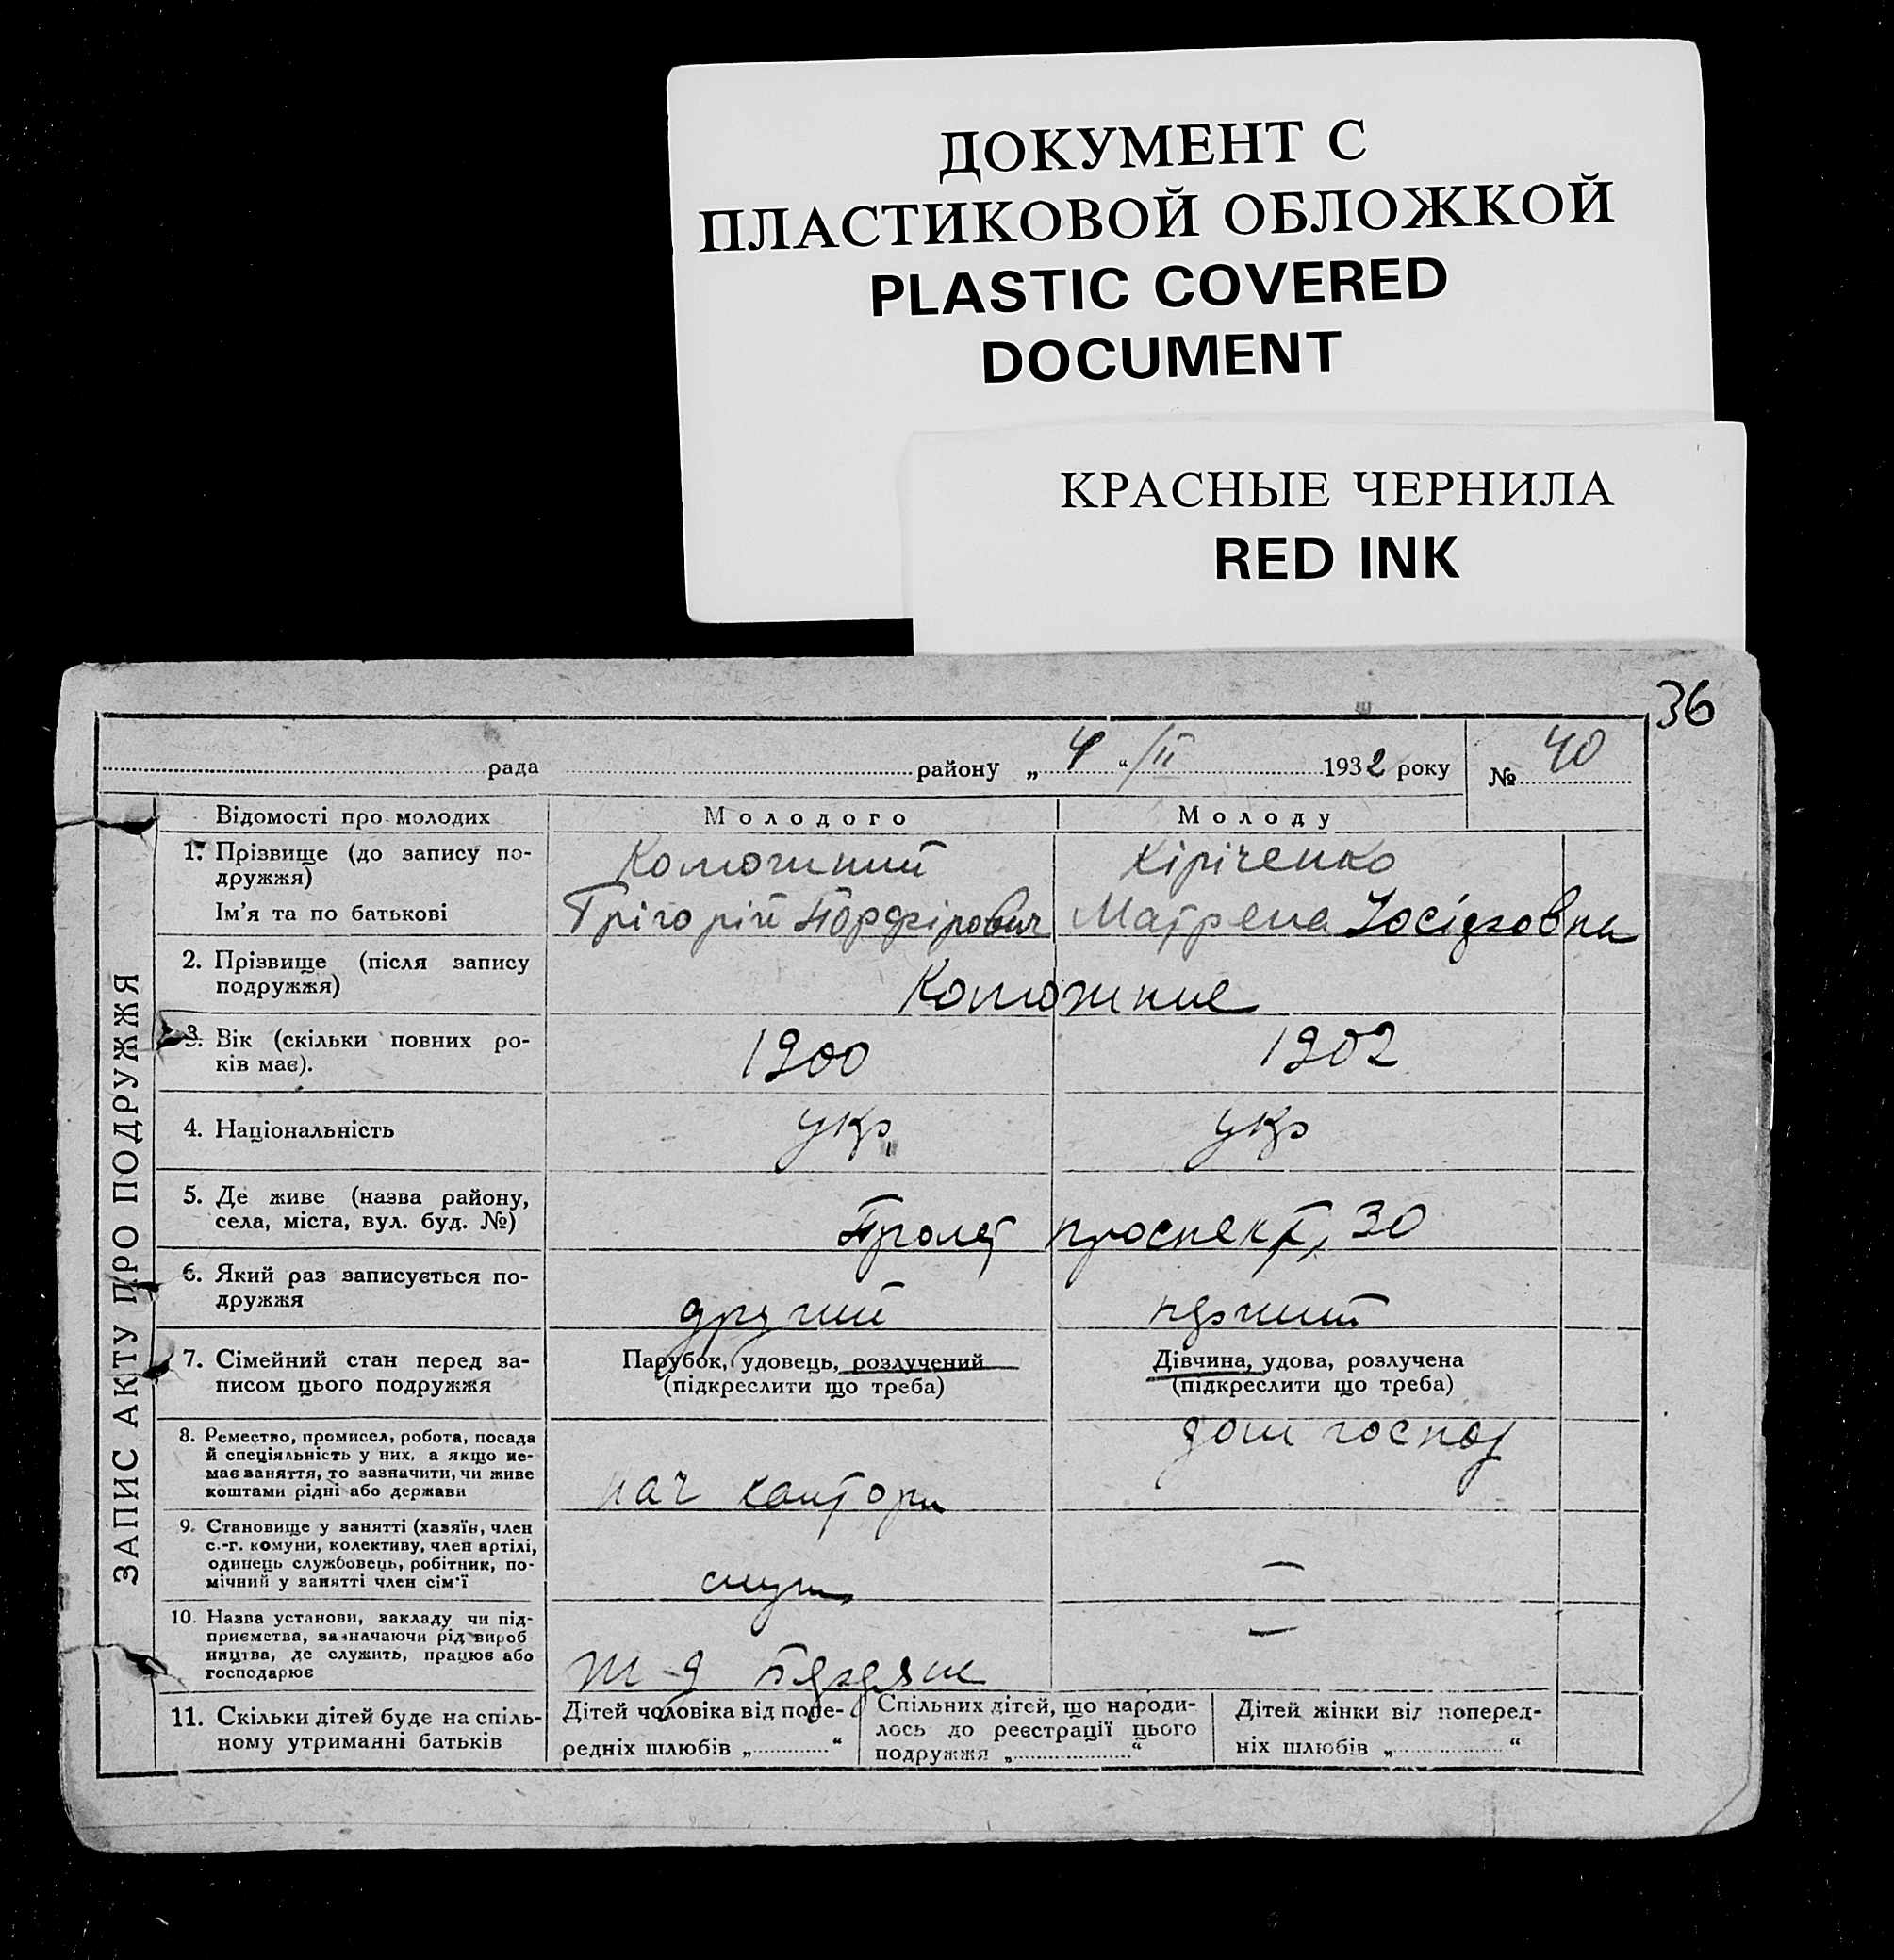 ДОКУМЕНТ С
ПЛАСТИКОВОЙ ОБЛОЖКОЙ
PLASTIC COVERED
DOCUMENT
КРАСНЫЕ ЧЕРНИЛА
RED INK
36
рада району „ 4 “ /II 1932 року № 40
ЗАПИС АКТУ ПРО ПОДРУЖЖЯ
Відомості про молодих Молодого Молоду
1. Прізвище (до запису по-
дружжя)
Кіріченко
Ім'я та по батькові Грігорій Порфірович Матрена Иосіфовна
2. Прізвище (після запису
подружжя)
3. Вік (скільки повних ро-
ків має).
1900 1902
4. Національність укр. укр
5. Де живе (назва району,
села, міста, вул. буд. №)
Пролет проспект, 30
6. Який раз записується по-
дружжя
другий перший
7. Сімейний стан перед за-
писом цього подружжя
Парубок, удовець, розлучений
(підкреслити що треба)
Дівчина, удова, розлучена
(підкреслити що треба)
8. Ремество, промисел, робота, посада
й спеціяльність у них, а якщо не-
має заняття, то зазначити, чи живе
коштами рідні або держави
нач контори
дом господ
9. Становище у занятті (хазяїн, член
с.-г. комуни, колективу, член артілі,
одинець службовець, робітник, по-
мічний у занятті член сім'ї
служ —
10. Назва установи, закладу чи під-
приємства, зазначаючи рід вироб
ництва, де служить, працює або
господарює
—
11. Скільки дітей буде на спіль-
ному утриманні батьків
Дітей чоловіка від попе-
редніх шлюбів „ “
Спільних дітей, що народи-
лось до реєстрації цього
подружжя „ “
Дітей жінки від поперед-
ніх шлюбів „ “